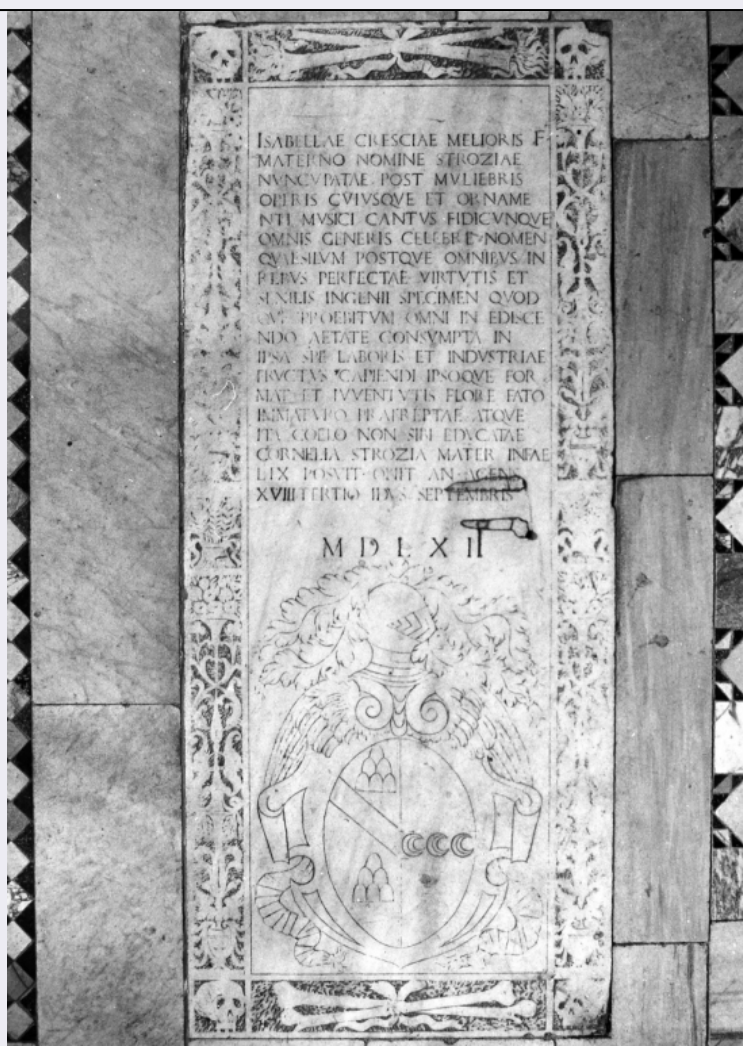 ISABELLAE CRESCIAE MELIORIS F·
MATERNO NOMINE STROZIAE
NVNCVPATAE POST MVLIEBRIS
OPERIS CVIVSQVE ET ORNAME
NTI MVSICI CANTVS FIDICVNQVE
OMNIS GENERIS CELEBRE NOMEN
QVAESITVM POSTQVE OMNIBVS IN
REBVS PERFECTAE VIRTVTIS ET
SENILIS INGENII SPECIMEN QVOD
PROEBITVM OMNI IN EDISCE
NDO AETATE CONSVMPTA IN
IPSA SPE LABORIS ET INDVSTRIAE
FRVCTVS CAPIENDI IPSOQVE FOR
MAE ET IVVENTVTIS FLORE FATO
IMMATVRO PRAEREPTAE ATQVE
ITA COELO NON SIBI EDVCATAE
CORNELIA STROZIA MATER INFAE
LIX POSVIT OBIIT AN AGENS
XVIII TERTIO IDVS SEPTEMBRIS
M D L X II